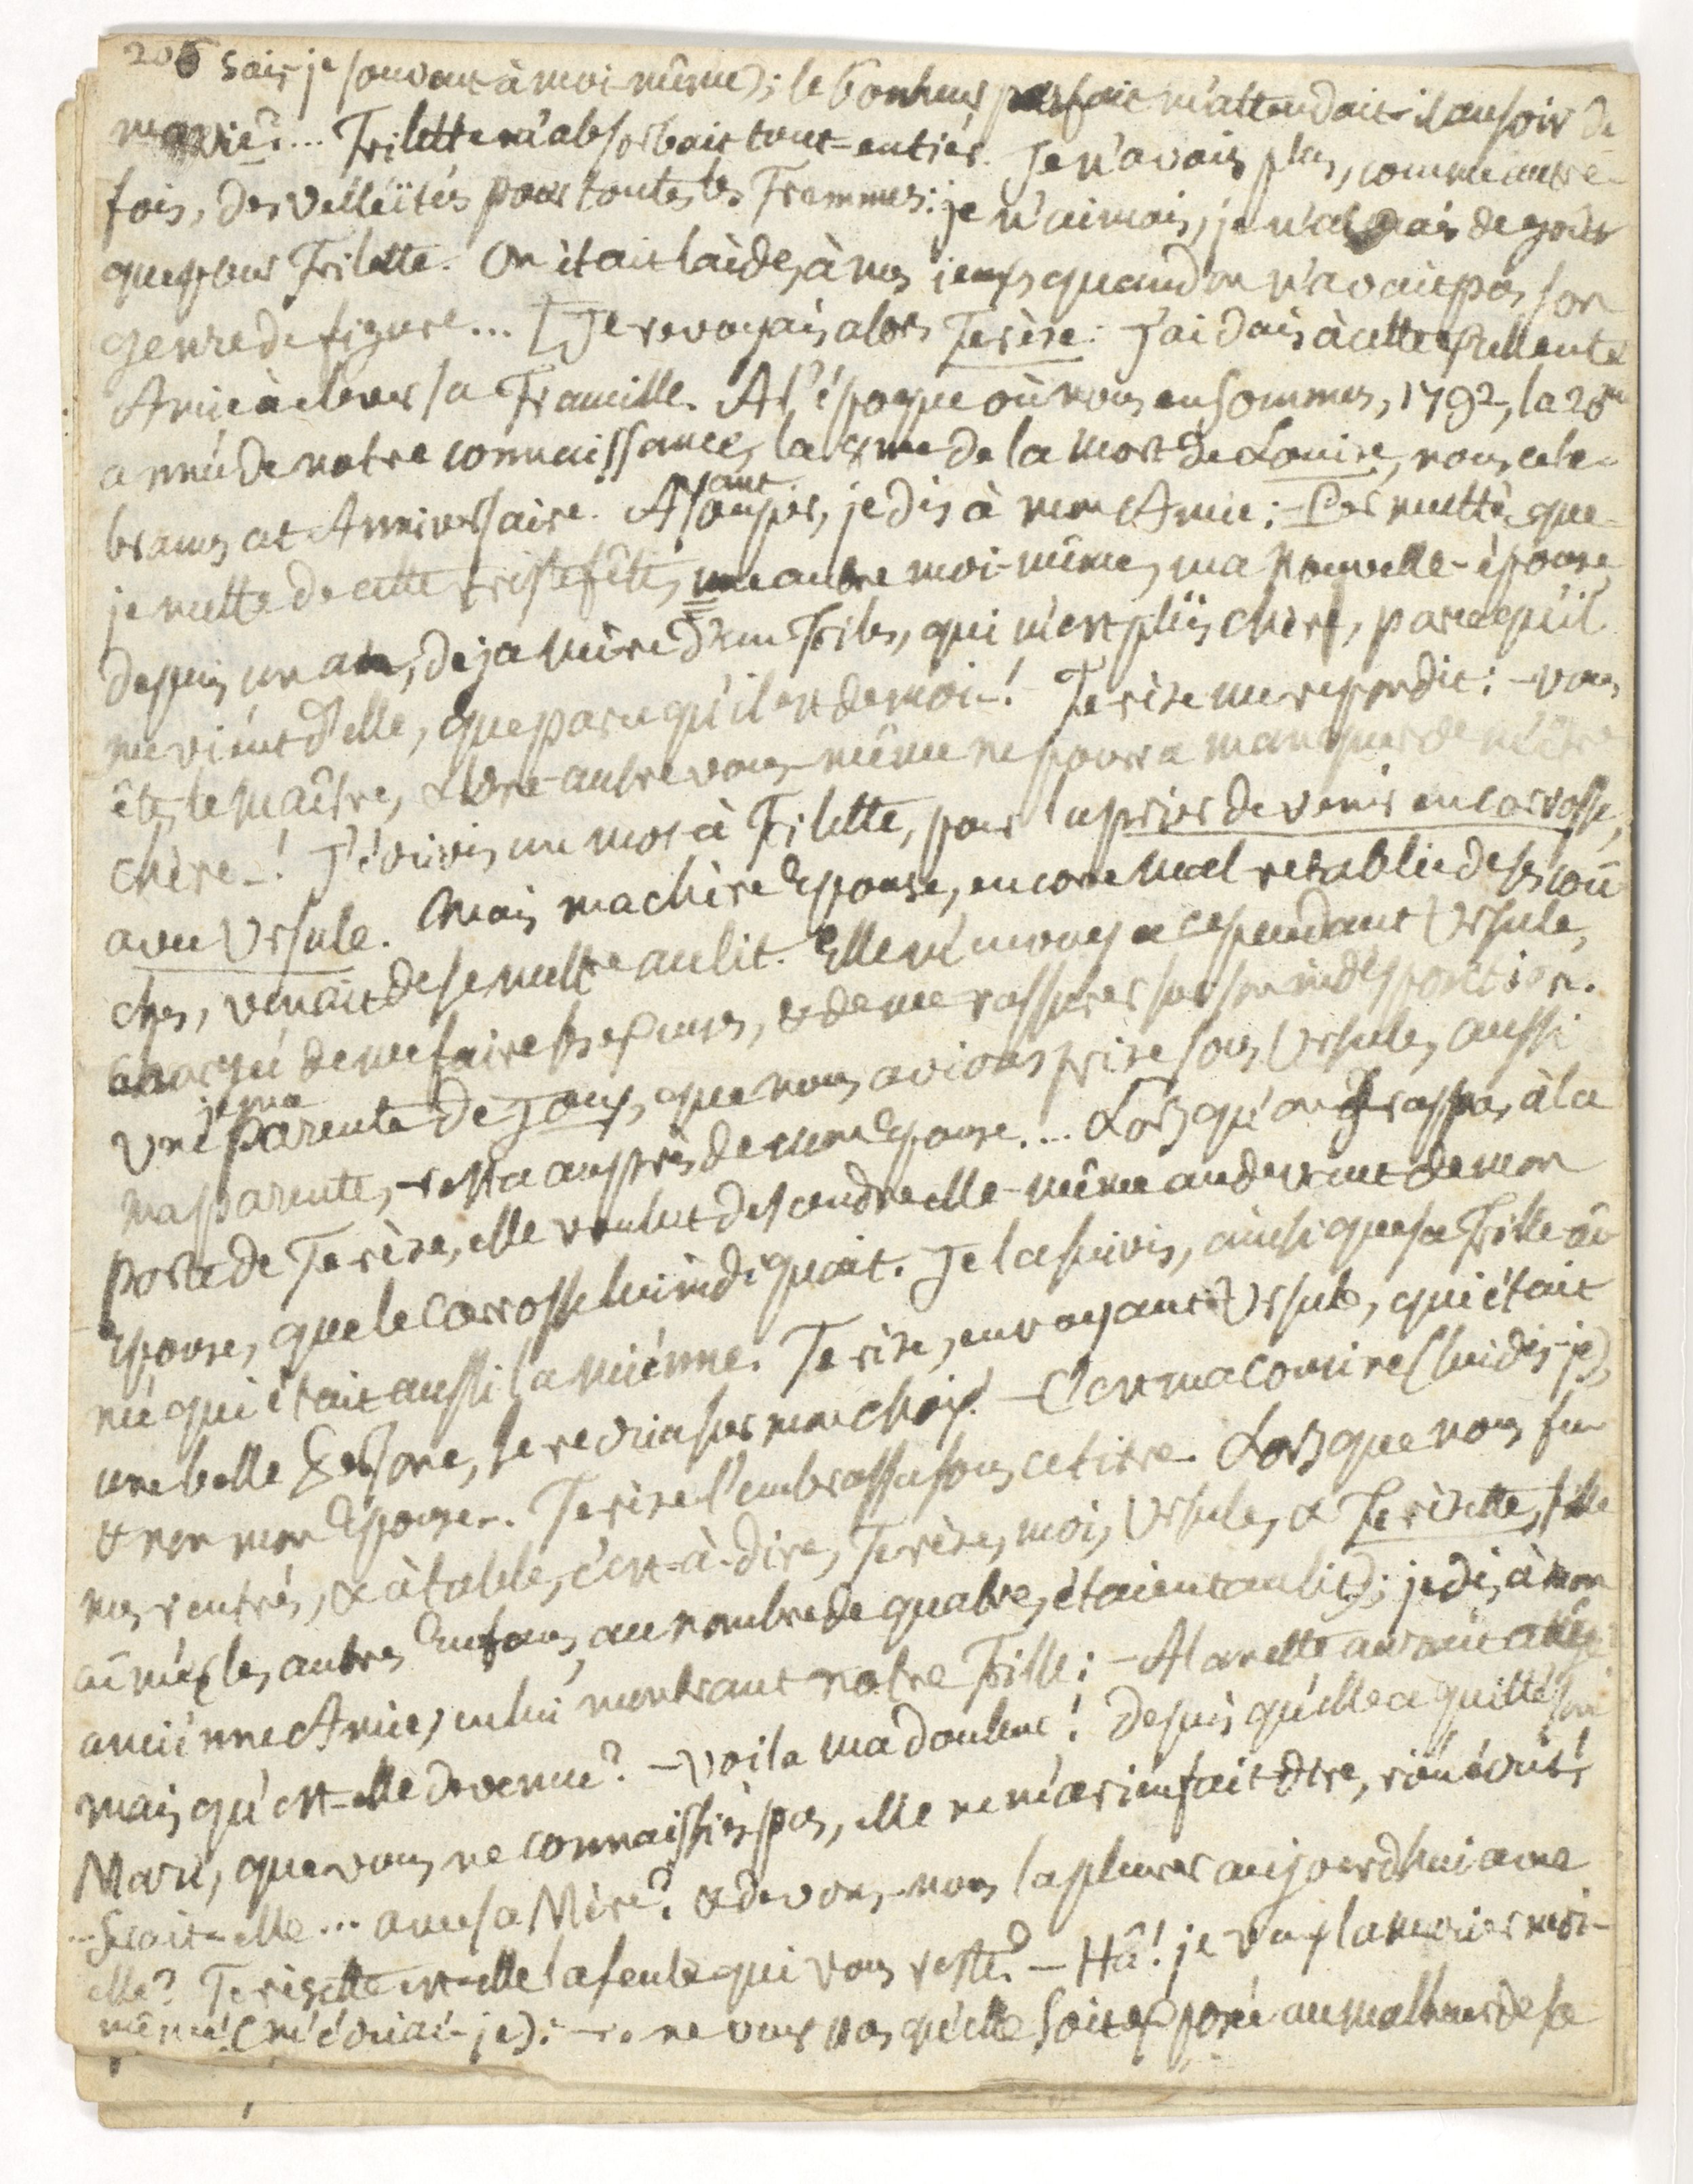 206 sais-je souvent à moi-même); le bonheur parfait m'attendait-il au soir de
ma vie?... Filette m'absorbait tout-entiér. Je n'avais plus, comme autre-
fois, des velléïtés pour toutes les Femmes: je n'aimais, je n'avais de goût
que pour Filette. On était laide, à mes ieux, quand on n'avait pas son
genre de figure... [Je revoyais alors Terèse: J'aidais à cette excellente
Amie à elever sa Famille. A l'époque où nous en sommes, 1792, la 20me
année de notre connaissance, la de la mort de Louise, nous cele-
brames cet Anniversaire. Avant souper, je dis à mon Amie: -Permettéz que
je mette de cette triste fête, une autre moi-même, ma Nouvelle-épouse,
depuis un an, deja Mère d'un Fils, qui m'est plus cher, parcequ'il
me viént d'elle, que parcequ'il est de moi-! Terèse me repondit: -Vous
êtes le Maître, & une autre vous-même ne pourra manquer de m'être
chère-! J'écrivis un mot à Filette, pour la prier de venir en carrosse,
avec Ursule. Mais ma chère Epouse, encore mal retablie de ses cou-
ches, venait de se mettre au lit. Elle m'envoya cependant Ursule,
chargée de me faire ses excuses, & de me rassurer sur son indisposition.
Une jeune parente de Jous, que nous avions prise sous Ursule, aussi
ma parente, resta auprès de mon Epouse.... Lorsqu'on frappa à la
porte de Terèse, elle voulut descendre elle-même audevant de mon
Epouse, que le carrosse lui indiquait. Je la suivis, ainsi que sa Fille aî-
née qui était aussi la miénne. Terèse, en voyant Ursule, qui était
une belle Persone, se recria sur mon choix. -C'est ma cousine (lui dis-je),
& non mon Epouse-. Terèse l'embrassa sous ce titre. Lorsque nous fu-
mes rentrés, & à table, c'est-à-dire, Terèse, moi, Ursule, & Terisette, fille
aînée (les autres Enfans, au nombre de quatre, étaient au lit); je dis à mon
anciénne Amie, en lui montrant notre Fille: -Alanette aurait
mais qu'est-elle devenue? -Voila ma douleur! Depuis qu'elle a quitté son
Mari, que vous ne connaissiés pas, elle ne m'a rien fait dire, rién écrit!
-Serait-elle... avec sa Mère? & devons-nous la pleurer aujourdhui avec
elle? Terisette est-elle la seule qui vous reste? -Hâ! je veux la marier moi-
même! (m'écriai-je): -... ne veux pas qu'elle soit exposée au malheur de sa